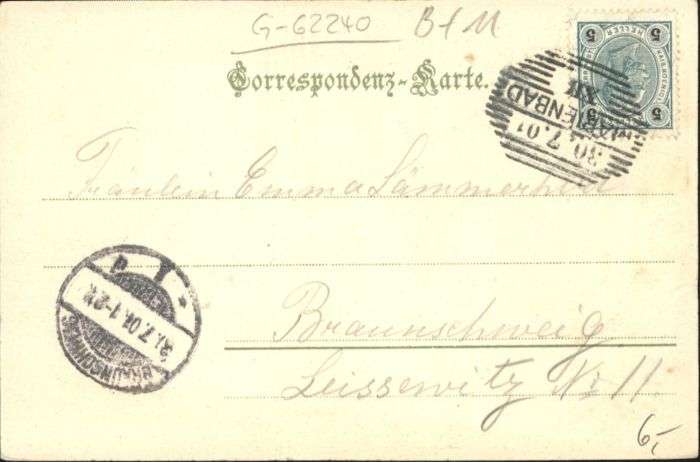 G-62240 BfM
Correspondenz-Karte.
5 HELLER 5
MARIENBAD
30.7.01
XII
5 5
Fräulein Emma Lämmerhirt
31.7.01.1-2N.
BRAUNSCHWEIG
Braunschweig
Leissewitz Nr 11.
6,-